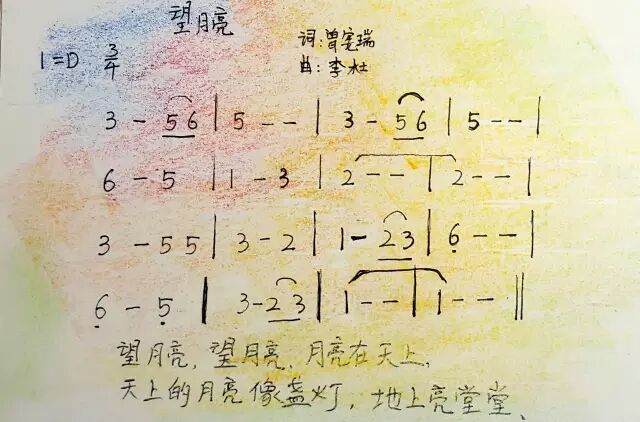 望月亮
词:曾宪瑞
1=D 3/4
曲:李杜
3 - 56 | 5 - - | 3 - 56 | 5 - - |
6 - 5 | 1 - 3 | 2 - - | 2 - - |
3 - 55 | 3 - 2 | 1 - 23 | 6 - - |
6 - 5 | 3 - 23 | 1 - - | 1 - - ||
望月亮,望月亮,月亮在天上,
天上的月亮像盏灯,地上亮堂堂、